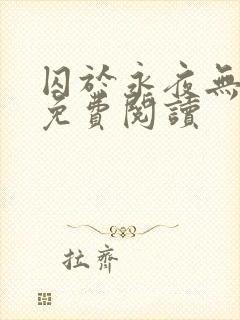 囚於永夜無
免費閱讀
拉齊